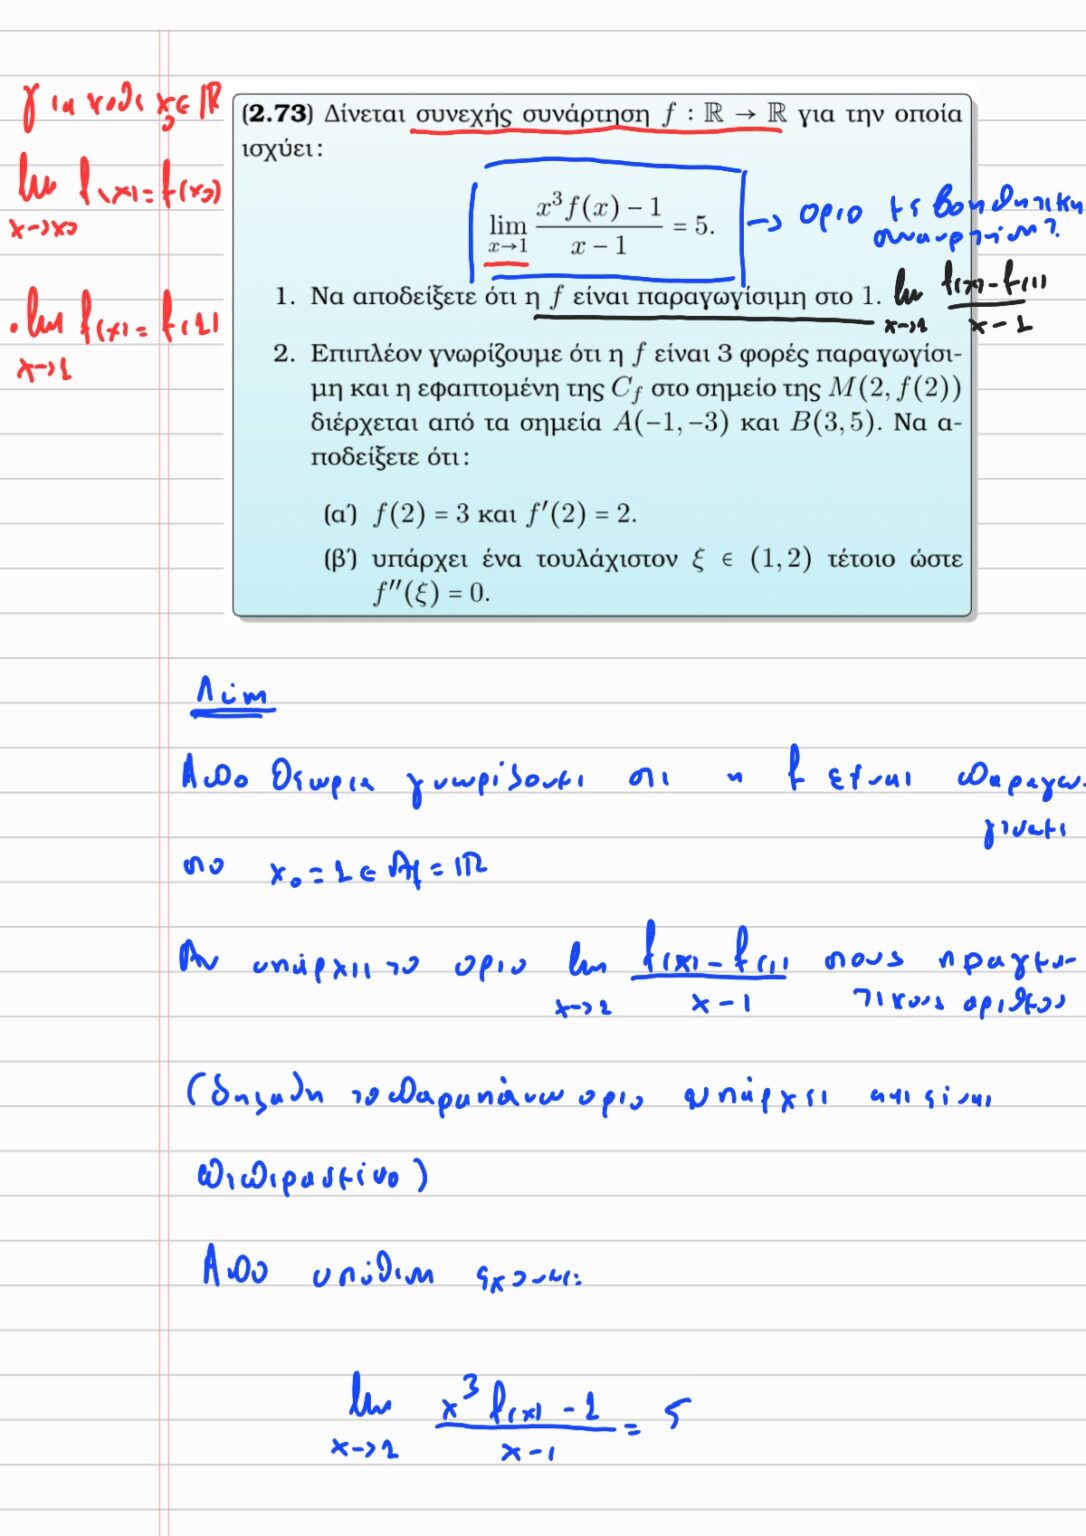 για καθε x₀∈ℝ
lim f(x)=f(x₀)
x→x₀
. lim f(x)=f(1)
x→1
(2.73) Δίνεται συνεχής συνάρτηση f : ℝ → ℝ για την οποία
ισχύει:
lim x→1 (x³f(x) − 1)/(x − 1) = 5.
→ οριο με βοηθητικη
συναρτηση?
1. Να αποδείξετε ότι η f είναι παραγωγίσιμη στο 1.
lim x→1 (f(x)-f(1))/(x-1)
2. Επιπλέον γνωρίζουμε ότι η f είναι 3 φορές παραγωγίσι-
μη και η εφαπτομένη της C_f στο σημείο της M(2, f(2))
διέρχεται από τα σημεία A(−1, −3) και B(3, 5). Να α-
ποδείξετε ότι:
(α΄) f(2) = 3 και f′(2) = 2.
(β΄) υπάρχει ένα τουλάχιστον ξ ∈ (1, 2) τέτοιο ώστε
f″(ξ) = 0.
Λύση
Απο θεωρια γνωριζουμε οτι η f ειναι παραγω-
γισιμη
στο x₀=1∈A_f=ℝ
Αν υπάρχει το οριο lim x→1 (f(x)-f(1))/(x-1) στους πραγμα-
τικους αριθμους
(δηλαδη το παραπάνω οριο υπάρχει και είναι
πεπερασμένο)
Απο υπόθεση εχουμε:
lim x→1 (x³f(x)-1)/(x-1) = 5